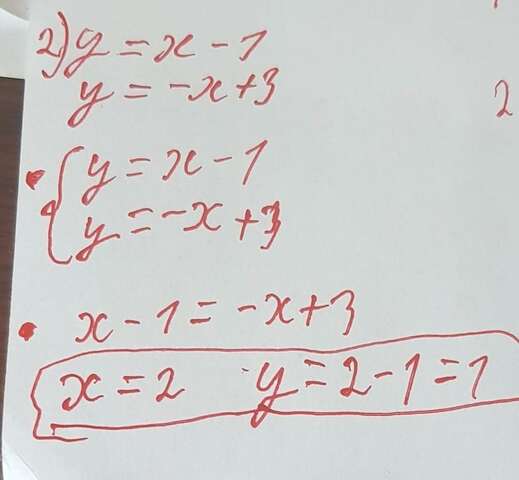 2) y = x - 1
y = -x + 3
2
y = x - 1
y = -x + 3
x - 1 = -x + 3
x = 2 y = 2 - 1 = 1